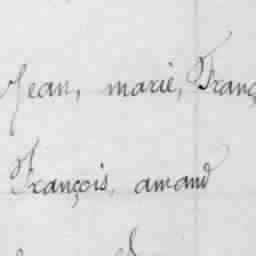 Jean, marie, Franç
François, amand